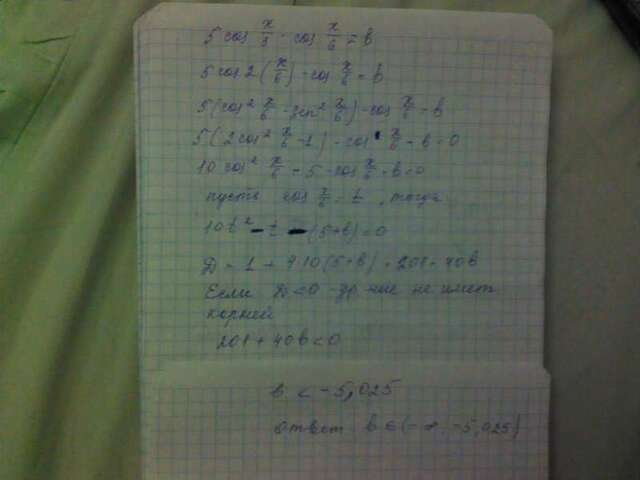 5 cos x/3 - cos x/6 = b
5 cos 2(x/6) - cos x/6 = b
5(cos² x/6 - sin² x/6) - cos x/6 = b
5(2cos² x/6 - 1) - cos x/6 - b = 0
10 cos² x/6 - 5 - cos x/6 - b = 0
пусть cos x/6 = t, тогда
10t² - t - (5+b) = 0
Д = 1 + 4·10(5+b) = 201 + 40b
Если Д < 0 ур-ние не имеет
корней
201 + 40b < 0
b < -5,025
ответ b ∈ (-∞, -5,025)